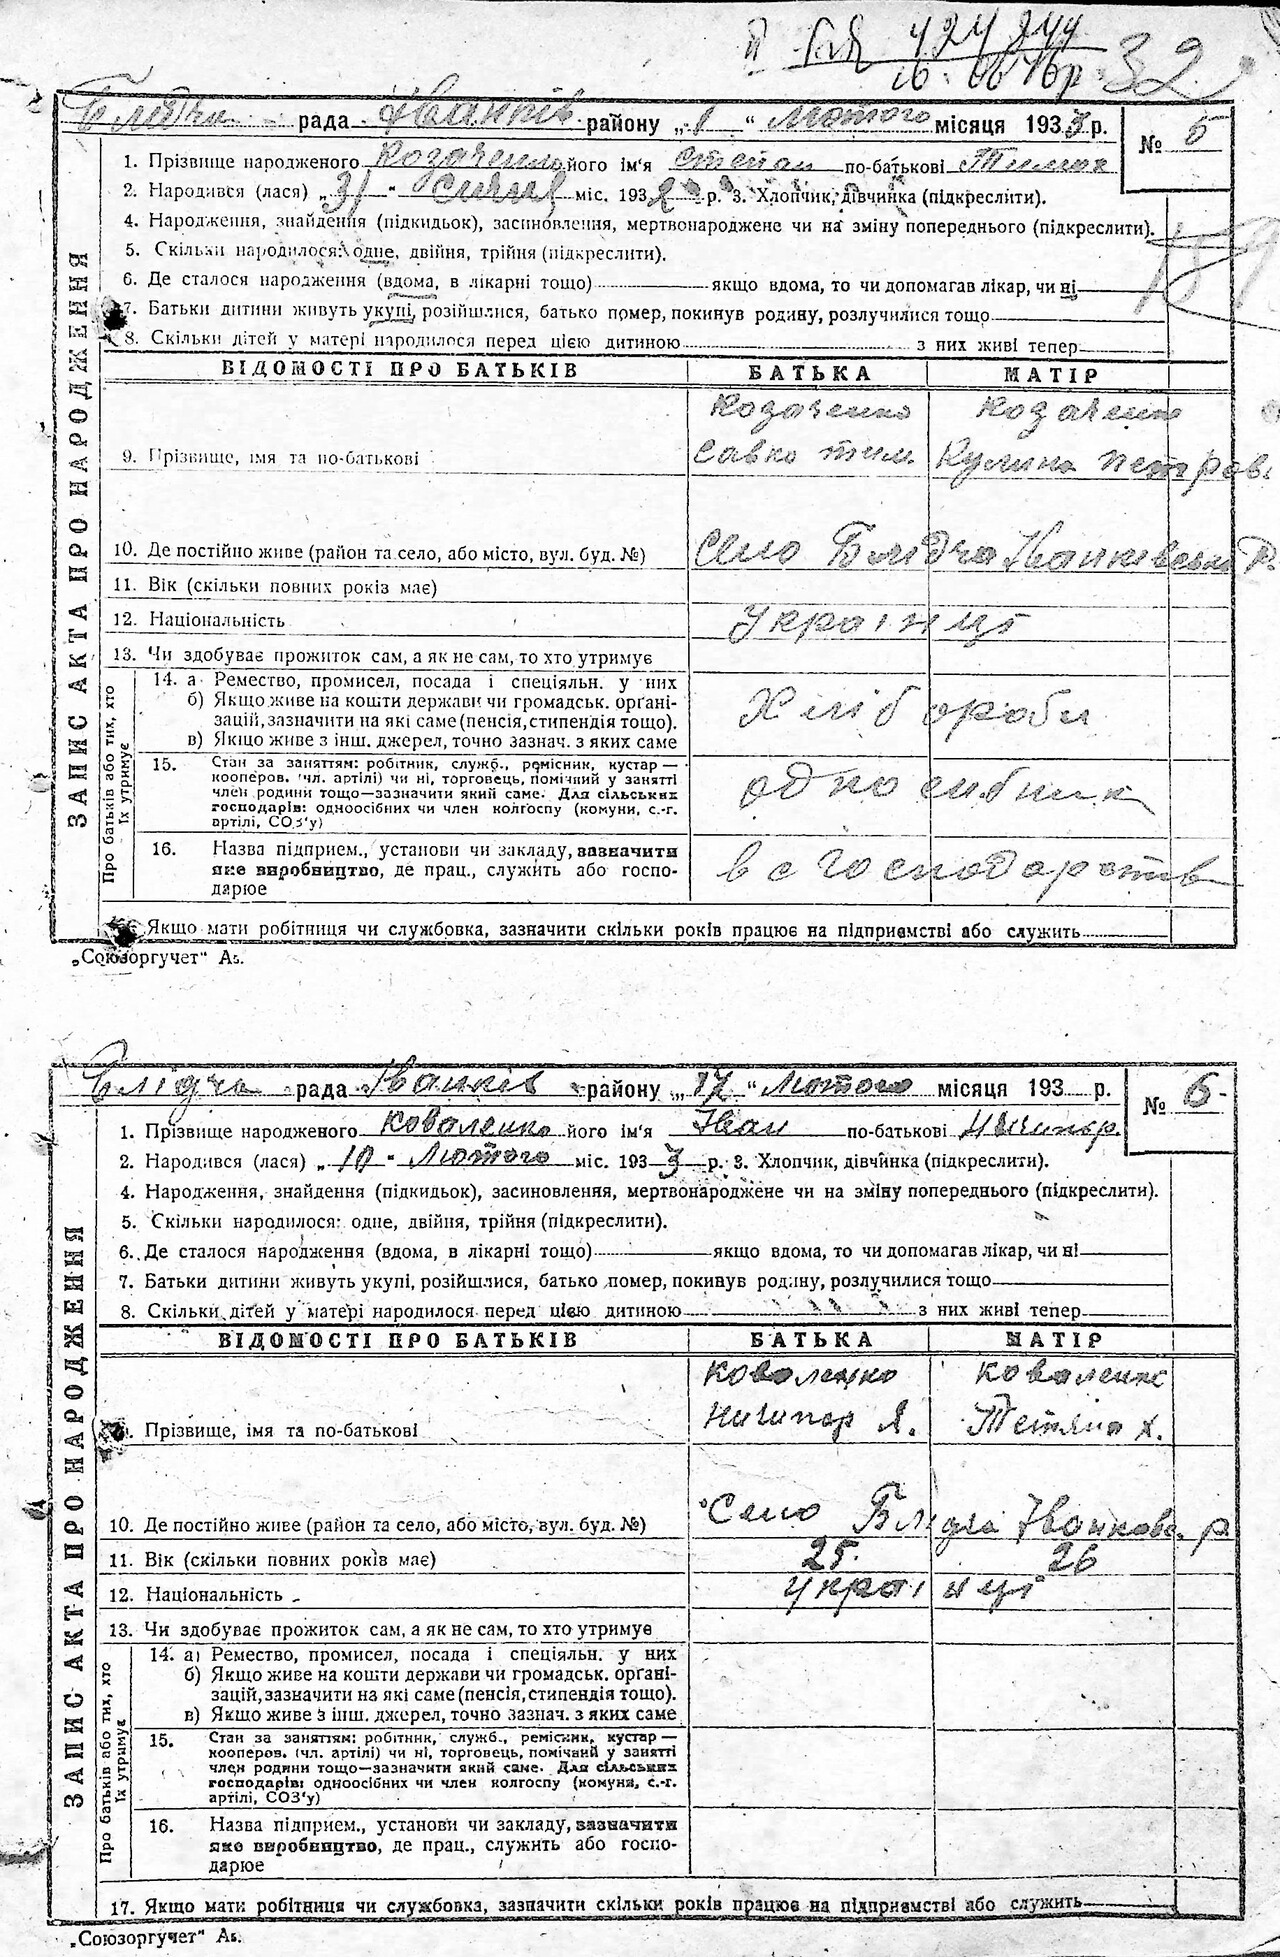 32
Блідча рада Іванків району „1“ Лютого місяця 1933 р.
№ 5
1. Прізвище народженого Козаченко його ім'я Степан по-батькові
2. Народився (лася) „31“ Січня міс. 1932 р. 3. Хлопчик, дівчинка (підкреслити).
4. Народження, знайдення (підкидьок), засиновлення, мертвонароджене чи на зміну попереднього (підкреслити).
5. Скільки народилося: одне, двійня, трійня (підкреслити).
6. Де сталося народження (вдома, в лікарні тощо) якщо вдома, то чи допомагав лікар, чи ні
7. Батьки дитини живуть укупі, розійшлися, батько помер, покинув родину, розлучилися тощо
8. Скільки дітей у матері народилося перед цією дитиною з них живі тепер
ЗАПИС АКТА ПРО НАРОДЖЕННЯ
ВІДОМОСТІ ПРО БАТЬКІВ БАТЬКА МАТІР
Козаченко Козаченко
9. Прізвище, імя та по-батькові Савко тим. Кулина Петров.
10. Де постійно живе (район та село, або місто, вул. буд. №) Село Блідча Іванківськ Р.
11. Вік (скільки повних років має)
12. Національність українці
13. Чи здобуває прожиток сам, а як не сам, то хто утримує
Про батьків або тих, хто їх утримує
14. а Ремество, промисел, посада і спеціяльн. у них
б) Якщо живе на кошти держави чи громадськ. органі-
зацій, зазначити на які саме (пенсія, стипендія тощо). Хлібороби
в) Якщо живе з інш. джерел, точно зазнач. з яких саме
15. Стан за заняттям: робітник, служб., ремісник, кустар—
кооперов. (чл. артілі) чи ні, торговець, помічний у занятті
член родини тощо—зазначити який саме. Для сільських
господарів: одноосібних чи член колгоспу (комуни, с.-г.
артілі, СОЗ'у)
16. Назва підприєм., установи чи закладу, зазначити
яке виробництво, де прац., служить або госпо-
дарює
Якщо мати робітниця чи службовка, зазначити скільки років працює на підприємстві або служить
„Союзоргучет“ А₅.
Блідча рада Іванків району „17“ Лютого місяця 193 р.
№ 6
1. Прізвище народженого Коваленко його ім'я Іван по-батькові Ничипор.
2. Народився (лася) „10“ Лютого міс. 1933 р. 3. Хлопчик, дівчинка (підкреслити).
4. Народження, знайдення (підкидьок), засиновлення, мертвонароджене чи на зміну попереднього (підкреслити).
5. Скільки народилося: одне, двійня, трійня (підкреслити).
6. Де сталося народження (вдома, в лікарні тощо) якщо вдома, то чи допомагав лікар, чи ні
7. Батьки дитини живуть укупі, розійшлися, батько помер, покинув родину, розлучилися тощо
8. Скільки дітей у матері народилося перед цією дитиною з них живі тепер
ЗАПИС АКТА ПРО НАРОДЖЕННЯ
ВІДОМОСТІ ПРО БАТЬКІВ БАТЬКА МАТІР
Коваленко Коваленк
Прізвище, імя та по-батькові Ничипор Я. Тетяна Х.
10. Де постійно живе (район та село, або місто, вул. буд. №) Село Блідча Іванковс. р
11. Вік (скільки повних років має) 25. 26
12. Національність українці
13. Чи здобуває прожиток сам, а як не сам, то хто утримує
Про батьків або тих, хто їх утримує
14. а) Ремество, промисел, посада і спеціяльн. у них
б) Якщо живе на кошти держави чи громадськ. органі-
зацій, зазначити на які саме (пенсія, стипендія тощо).
в) Якщо живе з інш. джерел, точно зазнач. з яких саме
15. Стан за заняттям: робітник, служб., ремісник, кустар—
кооперов. (чл. артілі) чи ні, торговець, помічний у занятті
член родини тощо—зазначити який саме. Для сільських
господарів: одноосібних чи член колгоспу (комуни, с.-г.
артілі, СОЗ'у)
16. Назва підприєм., установи чи закладу, зазначити
яке виробництво, де прац., служить або госпо-
дарює
17. Якщо мати робітниця чи службовка, зазначити скільки років працює на підприємстві або служить
„Союзоргучет“ А₅.